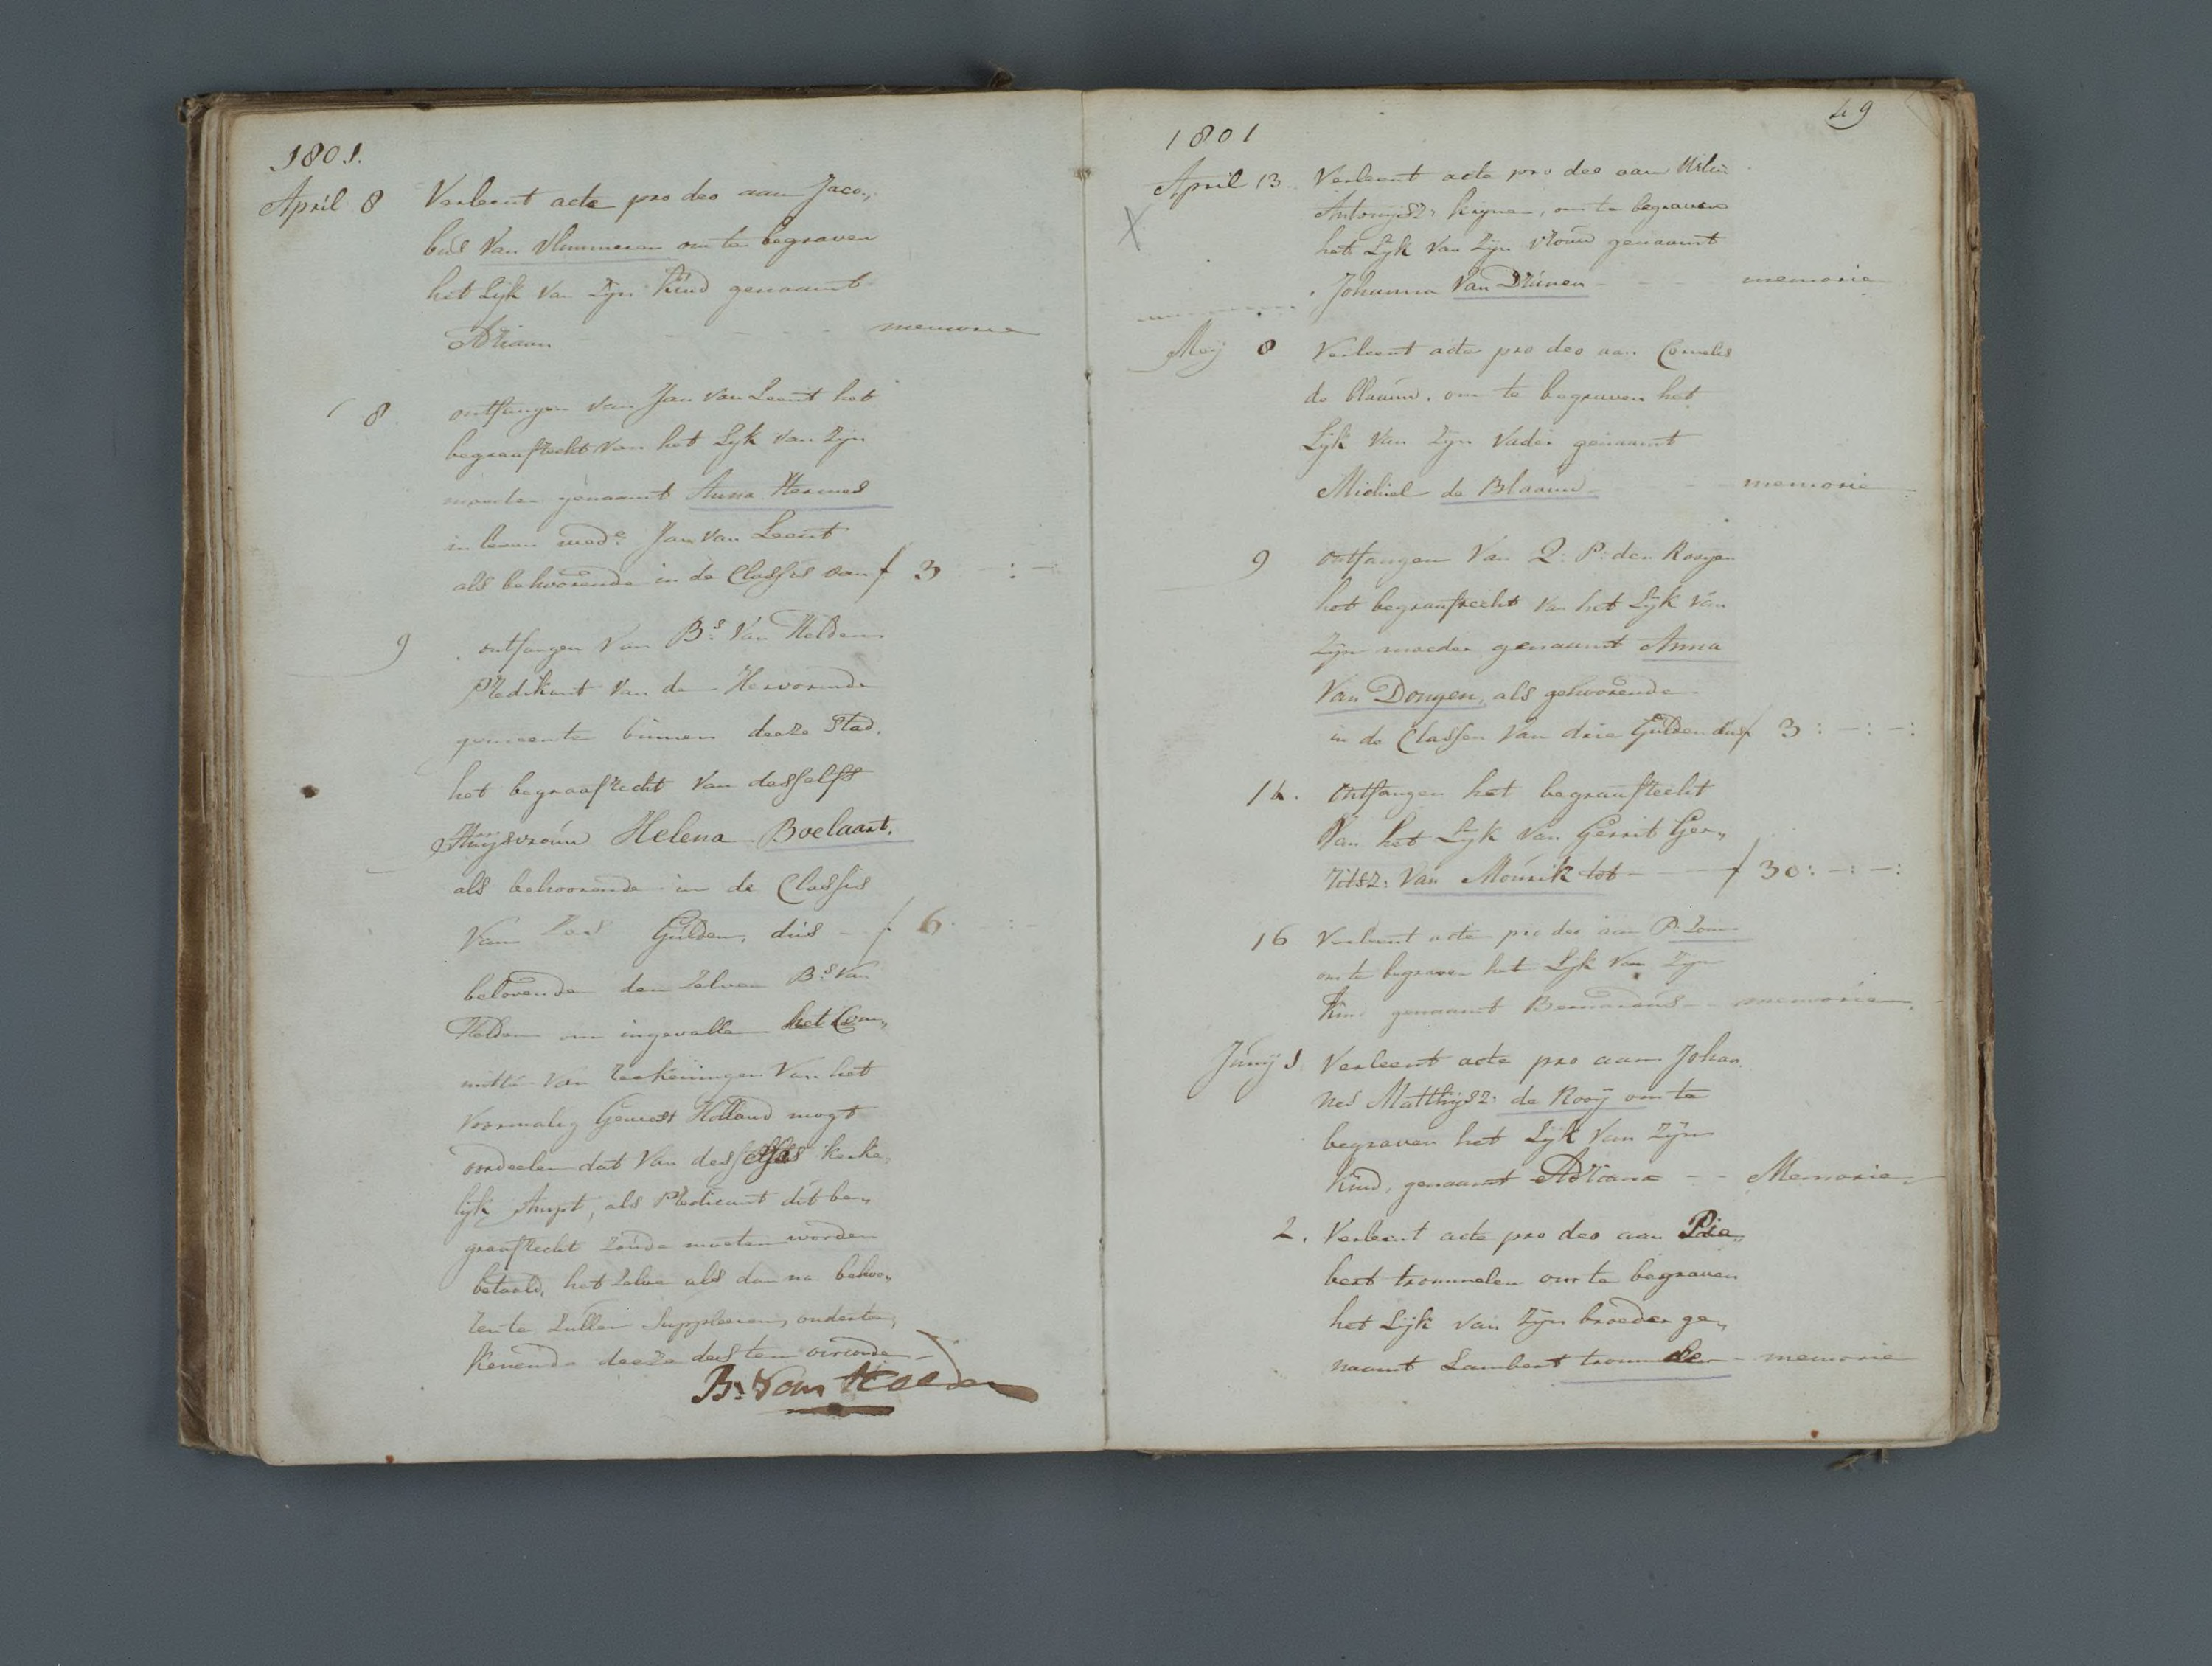 1801.
April 8 Verleent acte pro deo aan Jaco„
bus Van Vlummeren om te begraven
het Lijk Van Zijn Kind genaamt
Adriaan - - - - memorie
8 ontfangen van Jan van Leent het
begraafrecht van het Lijk van Zijn
moeder genaamt Anna Hermes
in leven wed:e Jan van Leent
als behoorende in de Classis van f 3 - : -
9 ontfangen Van B:s Van Helden
Predikant Van de Hervormde
gemeente binnen deeze Stad,
het begraafrecht Van desselfs
Huijsvrouw Helena Boelaart.
als behoorende in de Classis
Van Zes Gulden, dus - f 6 - : -
belovende den Zelven B:s Van
Helden om ingevallen het Com„
mitté Van Reekeningen Van het
Voormalig Gewest Holland mogt
oordeelen dat Van desselfs kerke„
lijk Ampt, als Predicant dit be„
graafrecht Zoude moeten worden
betaald, het Zelve als dan na behoo„
ren te Zullen Suppleeren, onderte„
kenende deeze des ten oirconde -
B:s Van Helden
49
1801
April 13 Verleent acte pro deo aan
Antonijsz: , om te begraven
het Lijk Van Zijn Vrouw genaamt
Johanna Van Drunen - - - memorie
Meij 8 Verleent acte pro deo aan Cornelis
de Blaauw, om te begraven het
Lijk Van Zijn Vader genaamt
Michiel de Blaauw - - memorie
9 ontfangen Van Q: P: den Rooijen
het begraafrecht Van het Lijk Van
Zijn moeder genaamt Anna
Van Dongen, als gehoorende
in de Classen Van drie Gulden dus f 3 : - : - :
16. Ontfangen het begraafrecht
Van het Lijk Van Gerrit Ger„
ritsz: Van Mourik tot - - f 30 : - : - :
16 Verleent acte pro deo aan P: Zom
om te begraven het Lijk Van Zijn
Kind genaamt Bernardus - - memorie
Junij 1. Verleent acte pro aan Johan„
nes Matthijsz: de Rooij om te
begraven het Lijk Van Zijn
Kind, genaamt Adriana - - Memorie
2. Verleent acte pro deo aan Pie„
bert trommelen om te begraven
het Lijk van Zijn broeder ge„
naamt Lambert trommelen - memorie